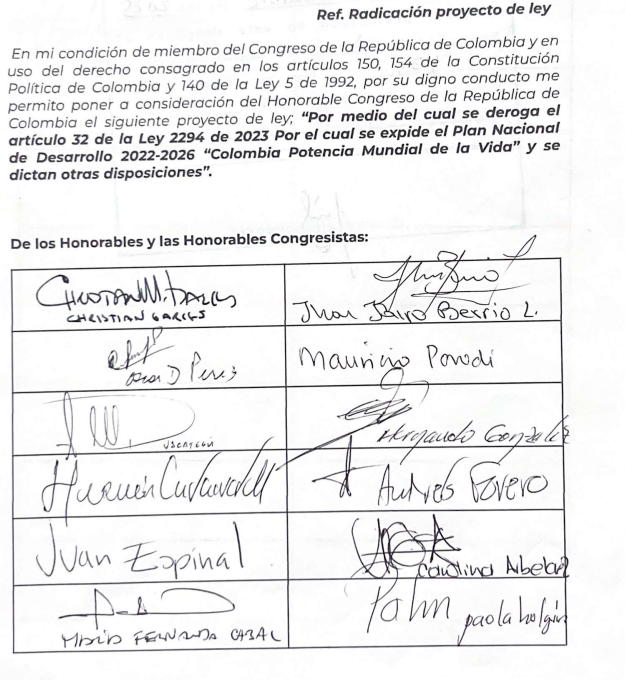 Ref. Radicación proyecto de ley
En mi condición de miembro del Congreso de la República de Colombia y en
uso del derecho consagrado en los artículos 150, 154 de la Constitución
Política de Colombia y 140 de la Ley 5 de 1992, por su digno conducto me
permito poner a consideración del Honorable Congreso de la República de
Colombia el siguiente proyecto de ley; “Por medio del cual se deroga el
artículo 32 de la Ley 2294 de 2023 Por el cual se expide el Plan Nacional
de Desarrollo 2022-2026 “Colombia Potencia Mundial de la Vida” y se
dictan otras disposiciones”.
De los Honorables y las Honorables Congresistas:
CHRISTIAN M. GARCES
CHRISTIAN GARCES
Jhon Jairo Berrio L.
Perez
Mauricio Parodi
JUSCATEGUI
Hernando González
Andrés Forero
Juan Espinal
Carolina Arbelaez
MARIA FERNANDA CABAL
paola holguin